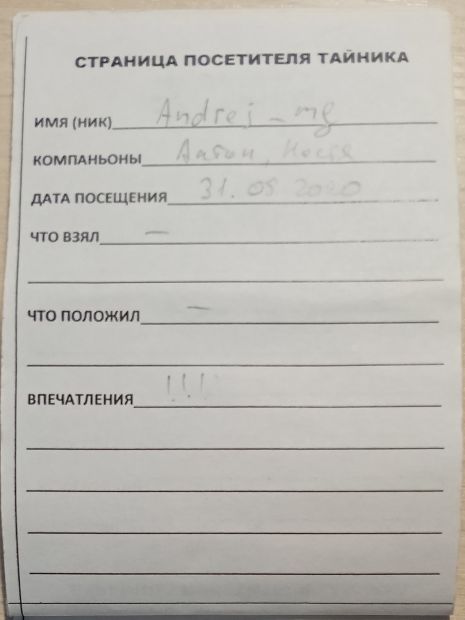 СТРАНИЦА ПОСЕТИТЕЛЯ ТАЙНИКА
ИМЯ (НИК) Andrej_mg
КОМПАНЬОНЫ Антон, Настя
ДАТА ПОСЕЩЕНИЯ 31.05 2020
ЧТО ВЗЯЛ —
ЧТО ПОЛОЖИЛ —
ВПЕЧАТЛЕНИЯ !!!